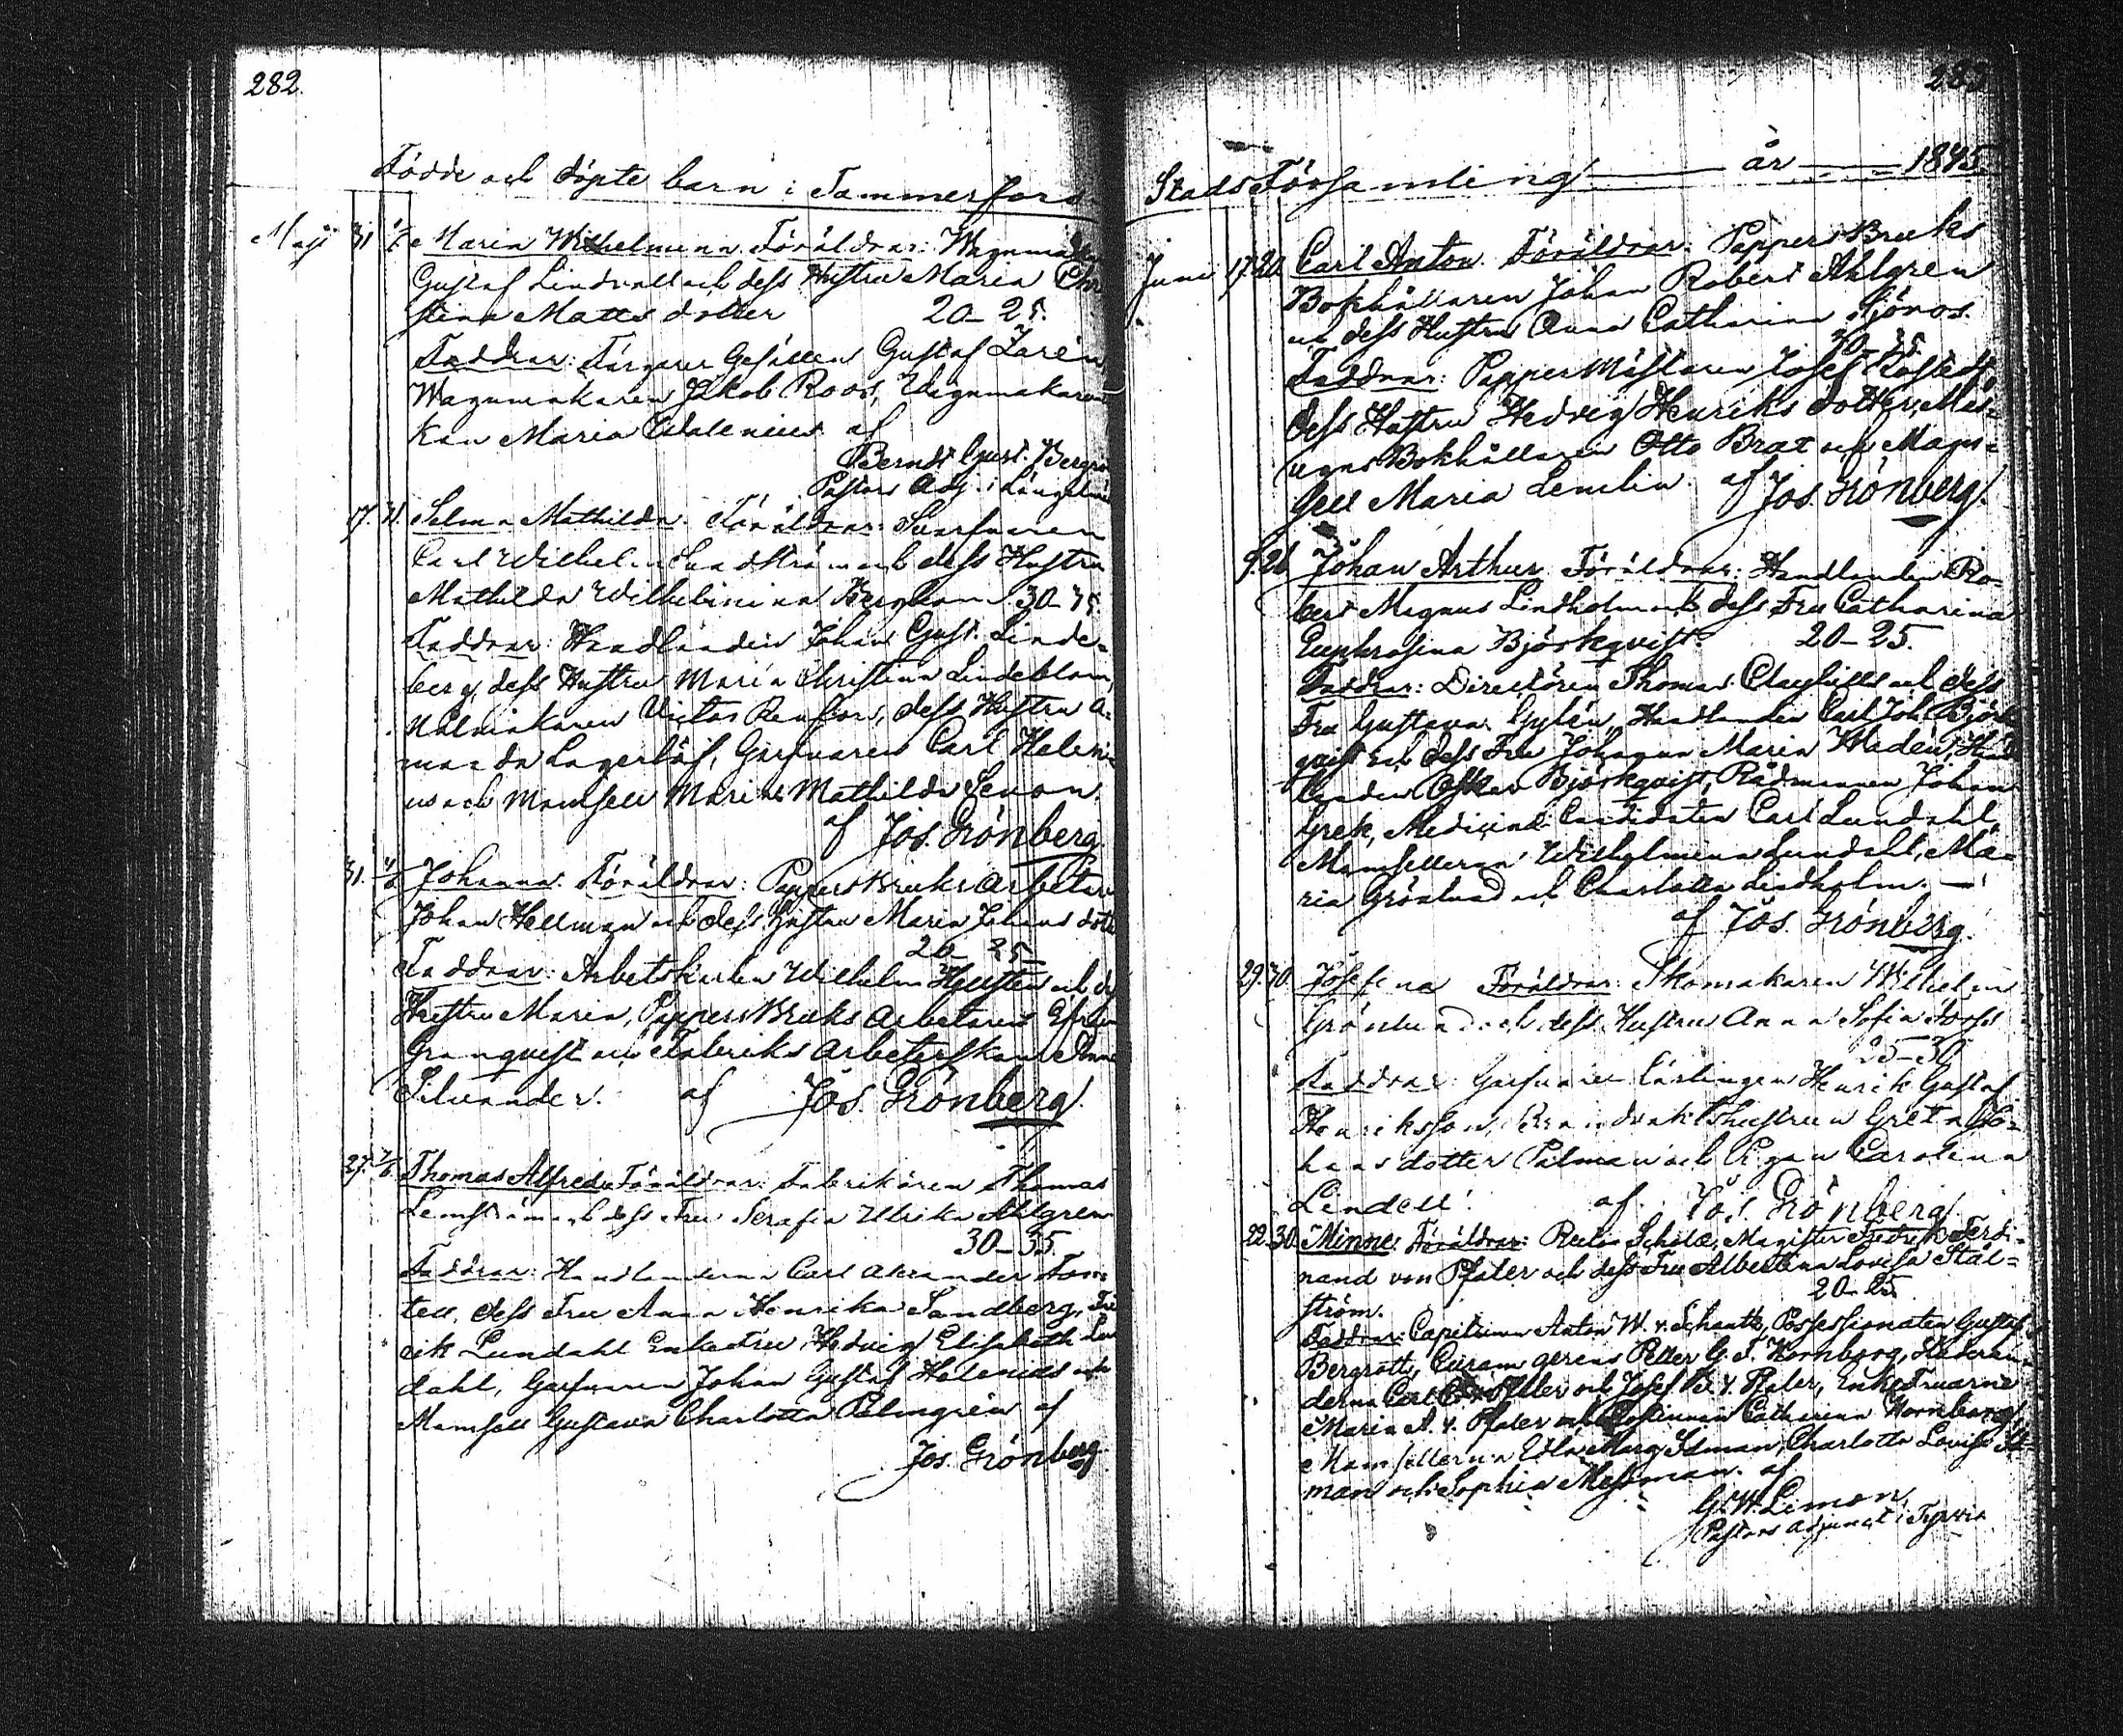 282.
Födde och döpte barn i Tammerfors
Maji 31 1/6 Maria Wilhelmina. Föräldrar: Wagnmakaren
Gustaf Lindvall och dess Hustru Maria Chri
stina Matts dotter 20–25.
Faddrar: Färgare Gesällen Gustaf Zarén
Wagnmakaren Jakob Roos, Wagnmakares
kan Maria af
Berndt Gust. Bergro
Pastors Adj. i Längelmä
17. 31. Selma Mathilda. Föräldrar: Garfvaren
Carl Wilhelm Sandström och dess Hustru
Mathilda Wilhelmina Bergbom 30–35.
Faddrar: Handlanden Johan Gust. Linde-
berg, dess Hustru Maria Christina Lindeblom,
Målaren Victor Renfors, dess Hustru A-
manda Lagerlöf, Garfvaren Carl Heleni-
us och Mamsell Maria Mathilda Lenon.
af Jos. Grönberg.
31. 1/6 Johanna. Föräldrar: Pappers Bruks Arbetar
Johan Hellman och dess Hustru Maria Johans dotter
20–25
Faddrar: Arbetskarlen Wilhelm Hellsten och dess
Hustru Maria, Pappers Bruks Arbetaren Efraim
Granqvist och Fabriks Arbeterskan Anna
Silvander. af Jos. Grönberg.
27. 2/6. Thomas Alfred. Föräldrar: Fabrikören Thomas
Lemström och dess Fru Serafia Ulrika Ahlgren
30–35.
Faddrar: Handlanderne Carl Alexander Fon-
tell, dess Fru Anna Henrika Sandberg, Fre
rik Lundahl Enkefru Hedvig Elisabeth Lun
dahl, Garfvaren Johan Gustaf Helenius och
Mamsell Gustava Charlotta Palmgrén af
Jos. Grönberg.
283
Stads Församling år 1845.
Juni 17. 20. Carl Anton. Föräldrar: Pappers Bruks
Bokhållaren Johan Robert Ahlgren
och dess Hustru Anna Catharina Sjöroos.
20–25
Faddrar: PappersMästaren Josef
dess Hustru Hedvig Henriks dotter, Mas-
ugns Bokhållaren Otto Brat och Mam-
sell Maria Lenelin af Jos. Grönberg.
9. 21 Johan Arthur. Föräldrar: Handlanden Ro-
bert Magnus Lindholm och dess Fru Catharina
Euphrosina Björkqvist. 20–25.
Faddrar: Directören Thomas Clayhills och dess
Fru Gustava Gylén, Handlanden Carl Joh. Björk
qvist och dess Fru Johanna Maria Wedén, Hand
landen Oskar Björkqvist, Rådmannen Johan
Grek, Medicine Candidaten Carl Lundahl,
Mamsellerna Wilhelmina Lundahl, Ma-
ria Grönlund och Charlotta Lindholm.
af Jos. Grönberg.
29. 30. Josefina Föräldrar: Skomakaren Wilhelm
Grönlund och dess Hustru Anna Sofia Forss
25–30
Faddrar: Garfvare Lärlingen Henrik Gustaf
Henriksson, Brandvakts hustrun Greta Jo-
hans dotter Palman och Pigan Carolina
Lindell. af Jos. Grönberg.
22. 30. Minne. Föräldrar: Rector Scholæ, Magister Fredrik Ferdi-
nand von Pfaler och dess Fru Albertina Lovisa Stål-
ström. 20–25
Faddrar: Capitainen Anton W. v. Schantz, Possessionaten Gustaf
Bergroth, Curam gerens Petter G. F. Hornborg, Studeran-
derna Carl v. Pfaler och Josef B. v. Pfaler, Enke Fruarne
Maria A. v. Pfaler och Catharina Hornborg,
Mamsellerna Edla Marg. Idman, Charlotta Lovisa Id-
man och Sophia Messman. af
G. W. Limon,
Pastors Adjunct i Tyrvis